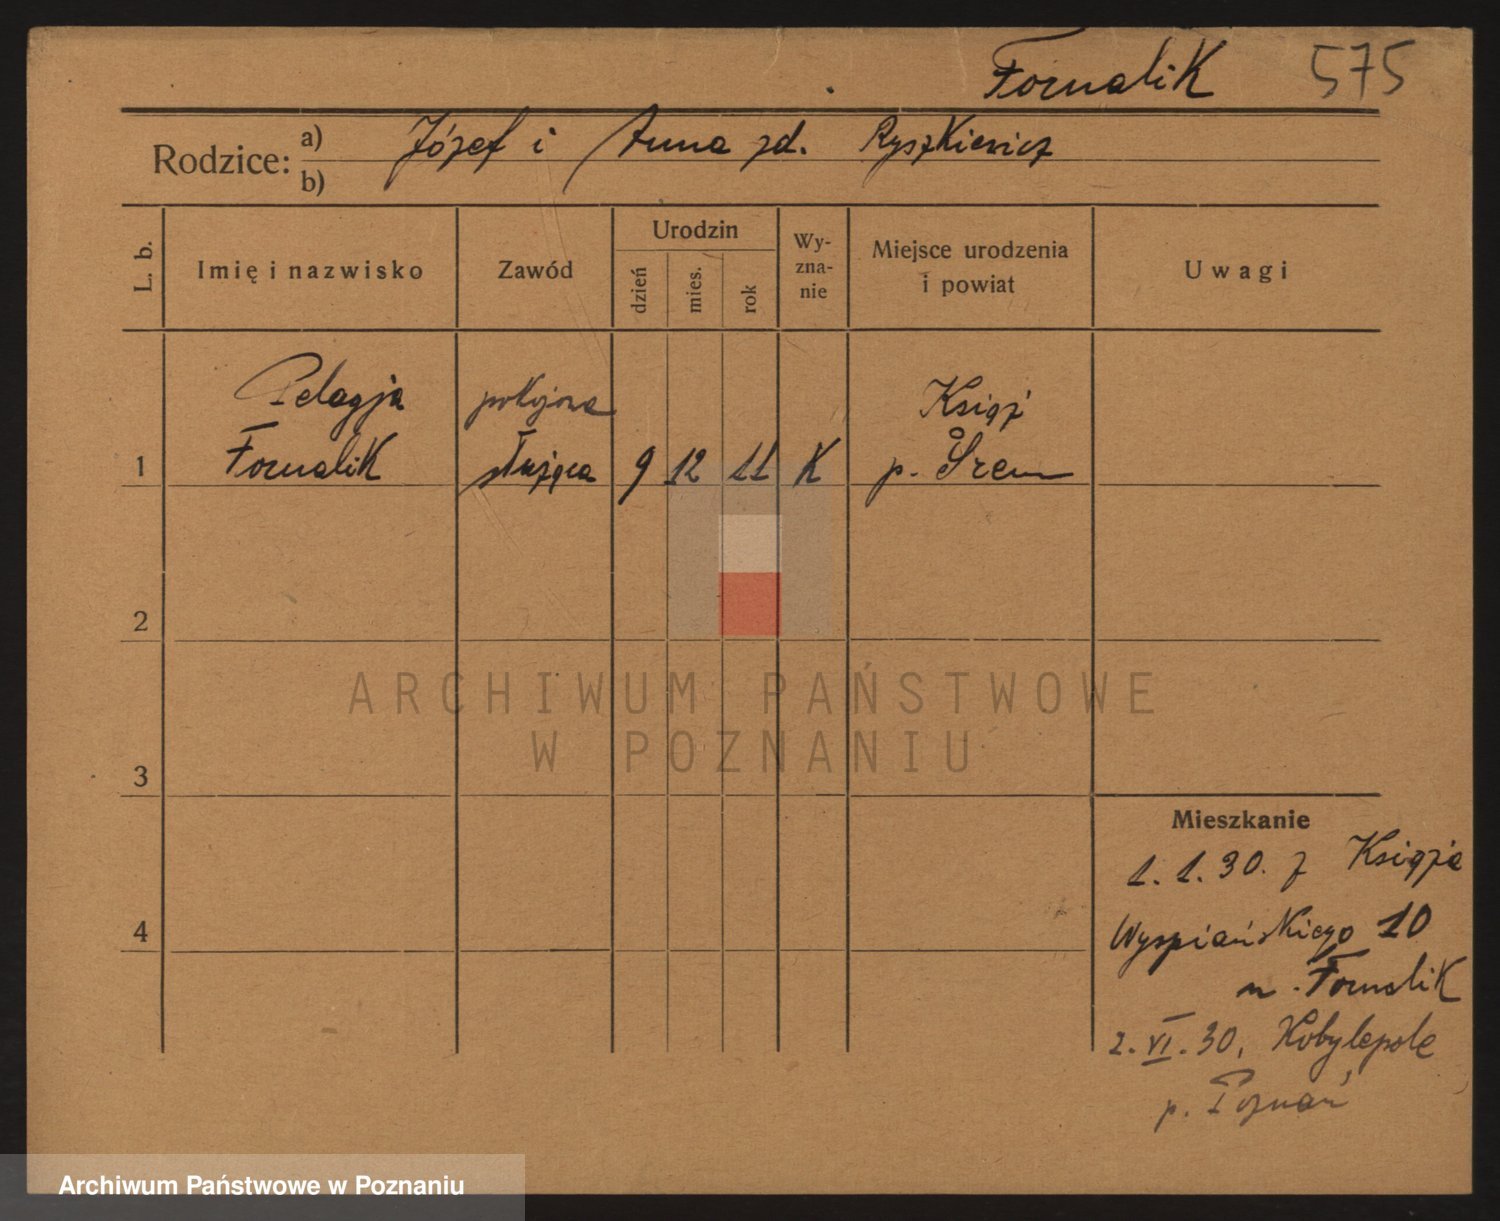 Fornalik 575
Rodzice: a) Józef i Anna zd. Ryszkiewicz
b)
L. b. Imię i nazwisko Zawód Urodzin dzień mies. rok Wy-zna-nie Miejsce urodzenia i powiat Uwagi
Pelagja pokojowa Książ
1 Fornalik służąca 9 12 11 K p. Śrem
2
ARCHIWUM PAŃSTWOWE
W POZNANIU
3
Mieszkanie
1. 1. 30. z Książa
4 Wyspiańskiego 10
n. Fornalik
2. VI. 30, Kobylepole
p. Poznań
Archiwum Państwowe w Poznaniu